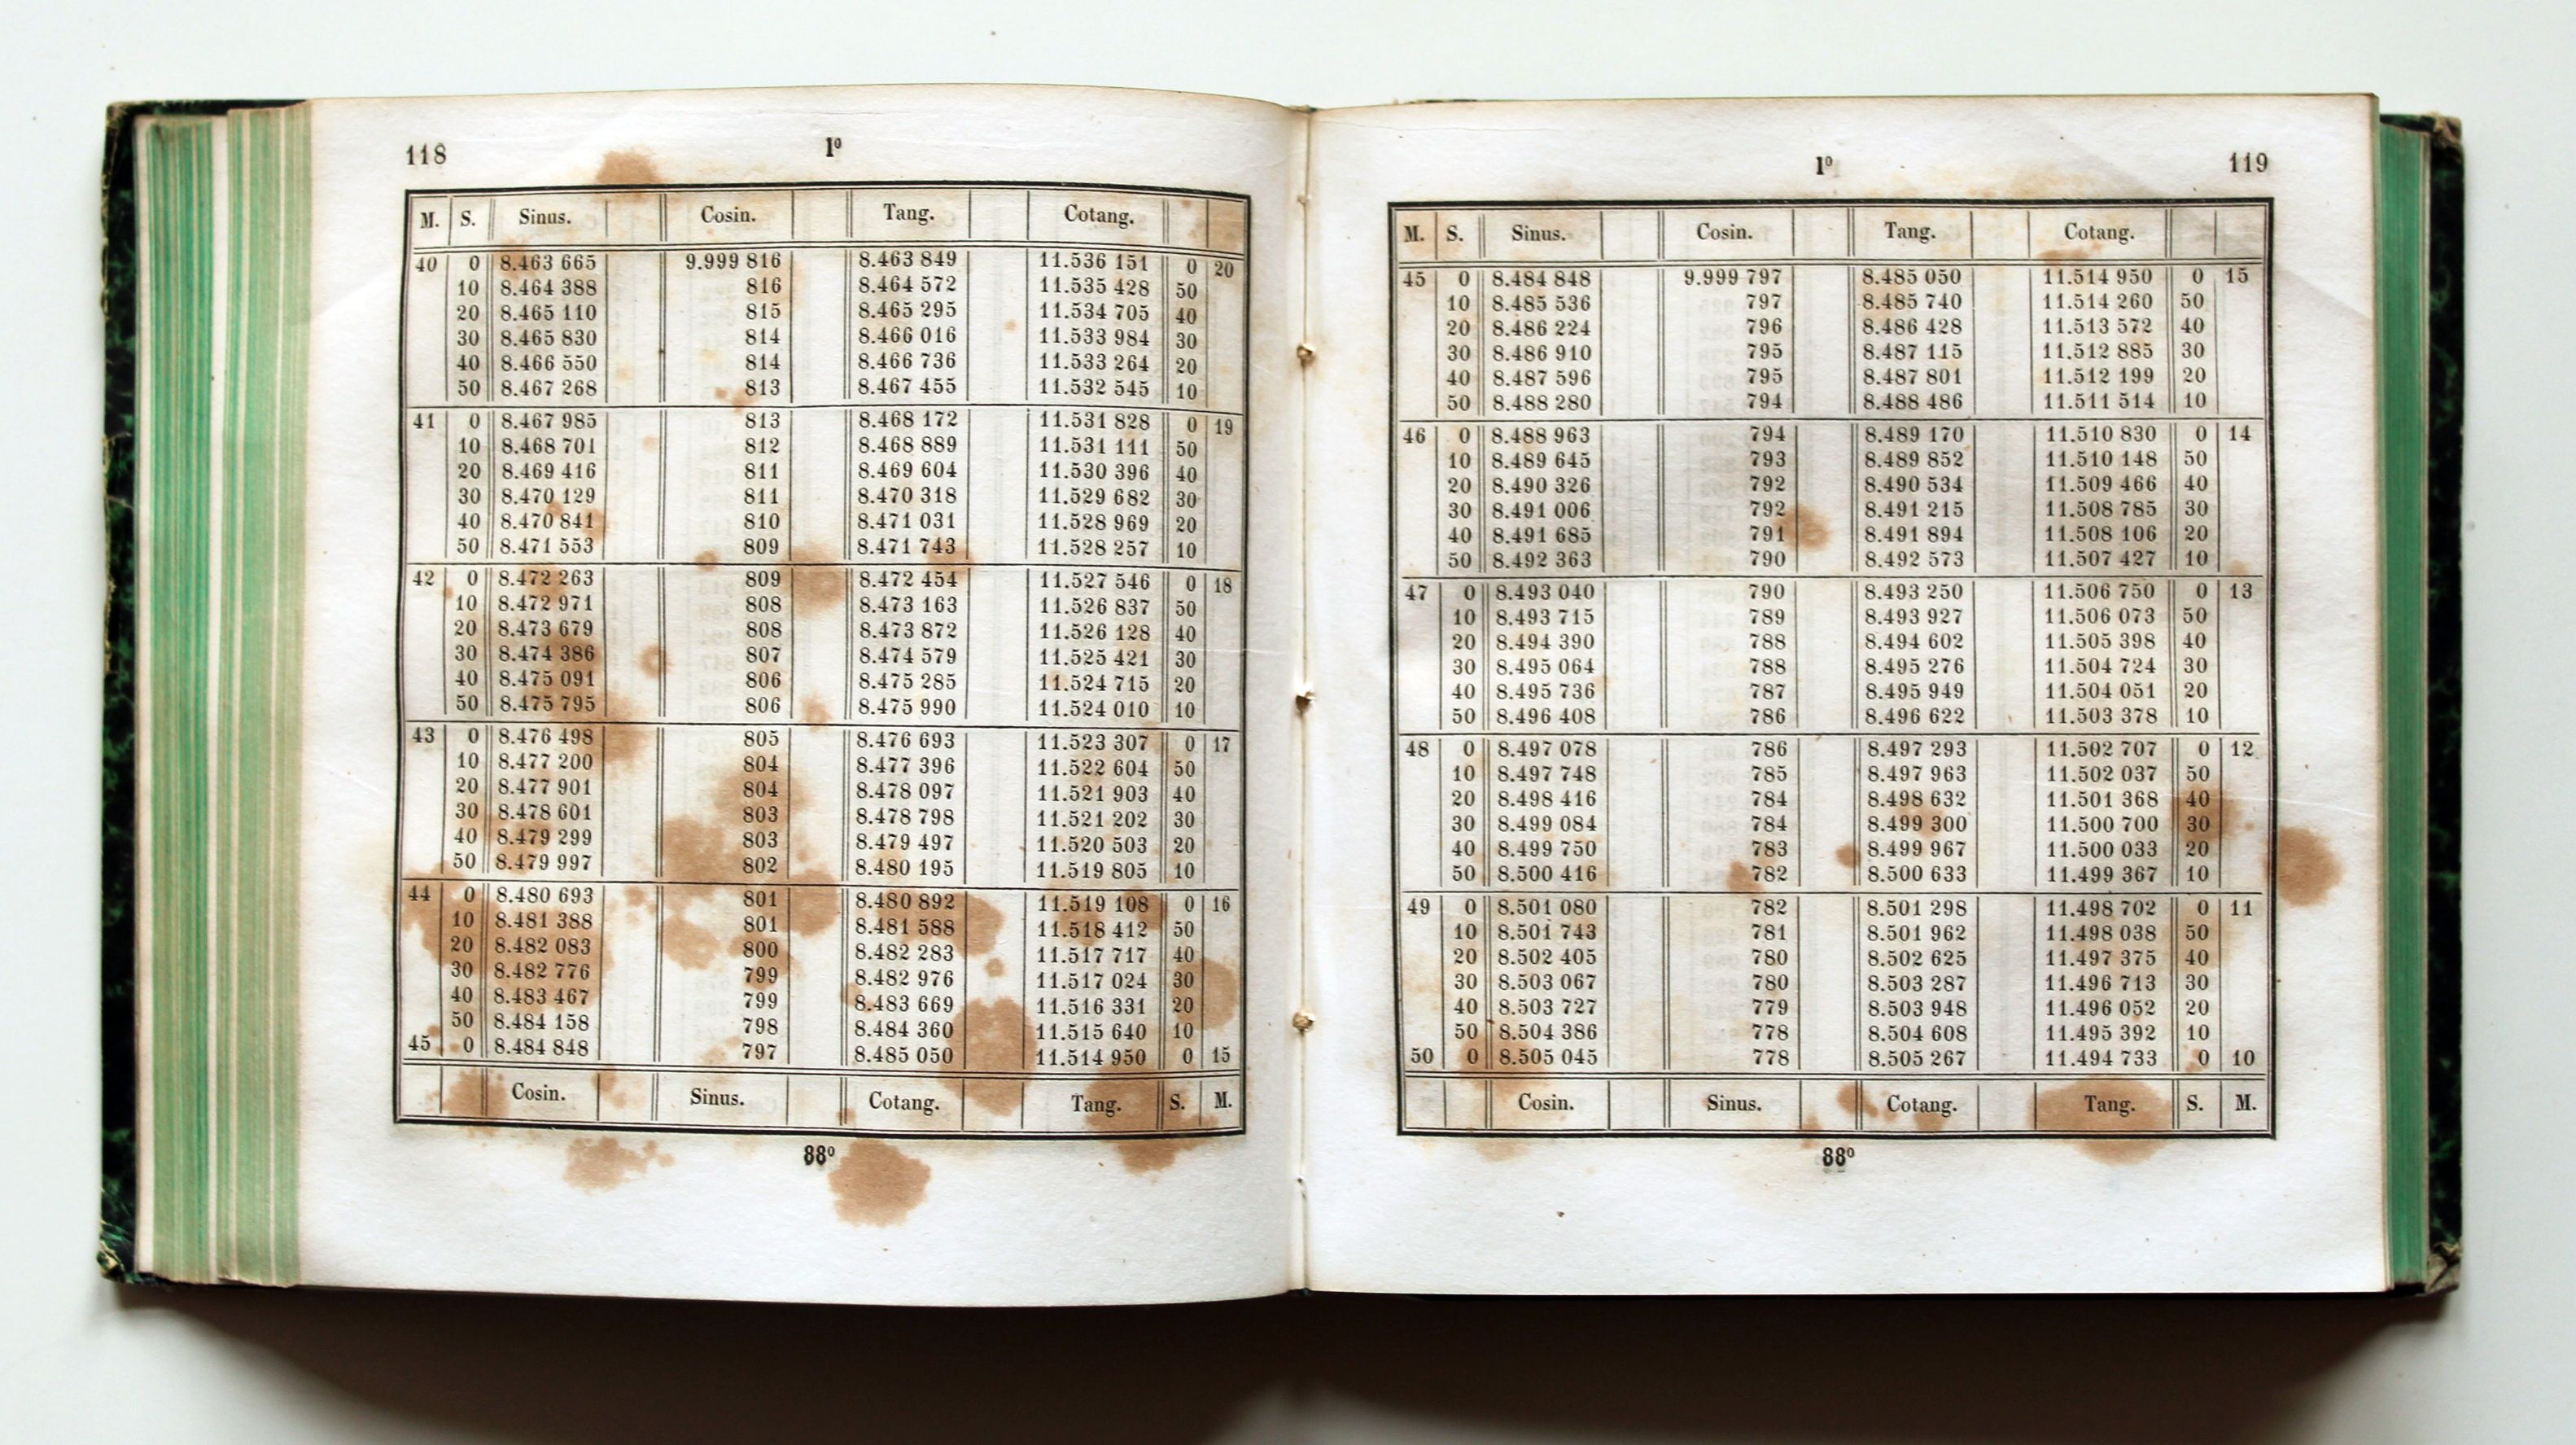 118
1⁰
M. S. Sinus. Cosin. Tang. Cotang.
40 0 8.463 665 9.999 816 8.463 849 11.536 151 0 20
10 8.464 388 816 8.464 572 11.535 428 50
20 8.465 110 815 8.465 295 11.534 705 40
30 8.465 830 814 8.466 016 11.533 984 30
40 8.466 550 814 8.466 736 11.533 264 20
50 8.467 268 813 8.467 455 11.532 545 10
41 0 8.467 985 813 8.468 172 11.531 828 0 19
10 8.468 701 812 8.468 889 11.531 111 50
20 8.469 416 811 8.469 604 11.530 396 40
30 8.470 129 811 8.470 318 11.529 682 30
40 8.470 841 810 8.471 031 11.528 969 20
50 8.471 553 809 8.471 743 11.528 257 10
42 0 8.472 263 809 8.472 454 11.527 546 0 18
10 8.472 971 808 8.473 163 11.526 837 50
20 8.473 679 808 8.473 872 11.526 128 40
30 8.474 386 807 8.474 579 11.525 421 30
40 8.475 091 806 8.475 285 11.524 715 20
50 8.475 795 806 8.475 990 11.524 010 10
43 0 8.476 498 805 8.476 693 11.523 307 0 17
10 8.477 200 804 8.477 396 11.522 604 50
20 8.477 901 804 8.478 097 11.521 903 40
30 8.478 601 803 8.478 798 11.521 202 30
40 8.479 299 803 8.479 497 11.520 503 20
50 8.479 997 802 8.480 195 11.519 805 10
44 0 8.480 693 801 8.480 892 11.519 108 0 16
10 8.481 388 801 8.481 588 11.518 412 50
20 8.482 083 800 8.482 283 11.517 717 40
30 8.482 776 799 8.482 976 11.517 024 30
40 8.483 467 799 8.483 669 11.516 331 20
50 8.484 158 798 8.484 360 11.515 640 10
45 0 8.484 848 797 8.485 050 11.514 950 0 15
Cosin. Sinus. Cotang. Tang. S. M.
88⁰
1⁰
119
M. S. Sinus. Cosin. Tang. Cotang.
45 0 8.484 848 9.999 797 8.485 050 11.514 950 0 15
10 8.485 536 797 8.485 740 11.514 260 50
20 8.486 224 796 8.486 428 11.513 572 40
30 8.486 910 795 8.487 115 11.512 885 30
40 8.487 596 795 8.487 801 11.512 199 20
50 8.488 280 794 8.488 486 11.511 514 10
46 0 8.488 963 794 8.489 170 11.510 830 0 14
10 8.489 645 793 8.489 852 11.510 148 50
20 8.490 326 792 8.490 534 11.509 466 40
30 8.491 006 792 8.491 215 11.508 785 30
40 8.491 685 791 8.491 894 11.508 106 20
50 8.492 363 790 8.492 573 11.507 427 10
47 0 8.493 040 790 8.493 250 11.506 750 0 13
10 8.493 715 789 8.493 927 11.506 073 50
20 8.494 390 788 8.494 602 11.505 398 40
30 8.495 064 788 8.495 276 11.504 724 30
40 8.495 736 787 8.495 949 11.504 051 20
50 8.496 408 786 8.496 622 11.503 378 10
48 0 8.497 078 786 8.497 293 11.502 707 0 12
10 8.497 748 785 8.497 963 11.502 037 50
20 8.498 416 784 8.498 632 11.501 368 40
30 8.499 084 784 8.499 300 11.500 700 30
40 8.499 750 783 8.499 967 11.500 033 20
50 8.500 416 782 8.500 633 11.499 367 10
49 0 8.501 080 782 8.501 298 11.498 702 0 11
10 8.501 743 781 8.501 962 11.498 038 50
20 8.502 405 780 8.502 625 11.497 375 40
30 8.503 067 780 8.503 287 11.496 713 30
40 8.503 727 779 8.503 948 11.496 052 20
50 8.504 386 778 8.504 608 11.495 392 10
50 0 8.505 045 778 8.505 267 11.494 733 0 10
Cosin. Sinus. Cotang. Tang. S. M.
88⁰